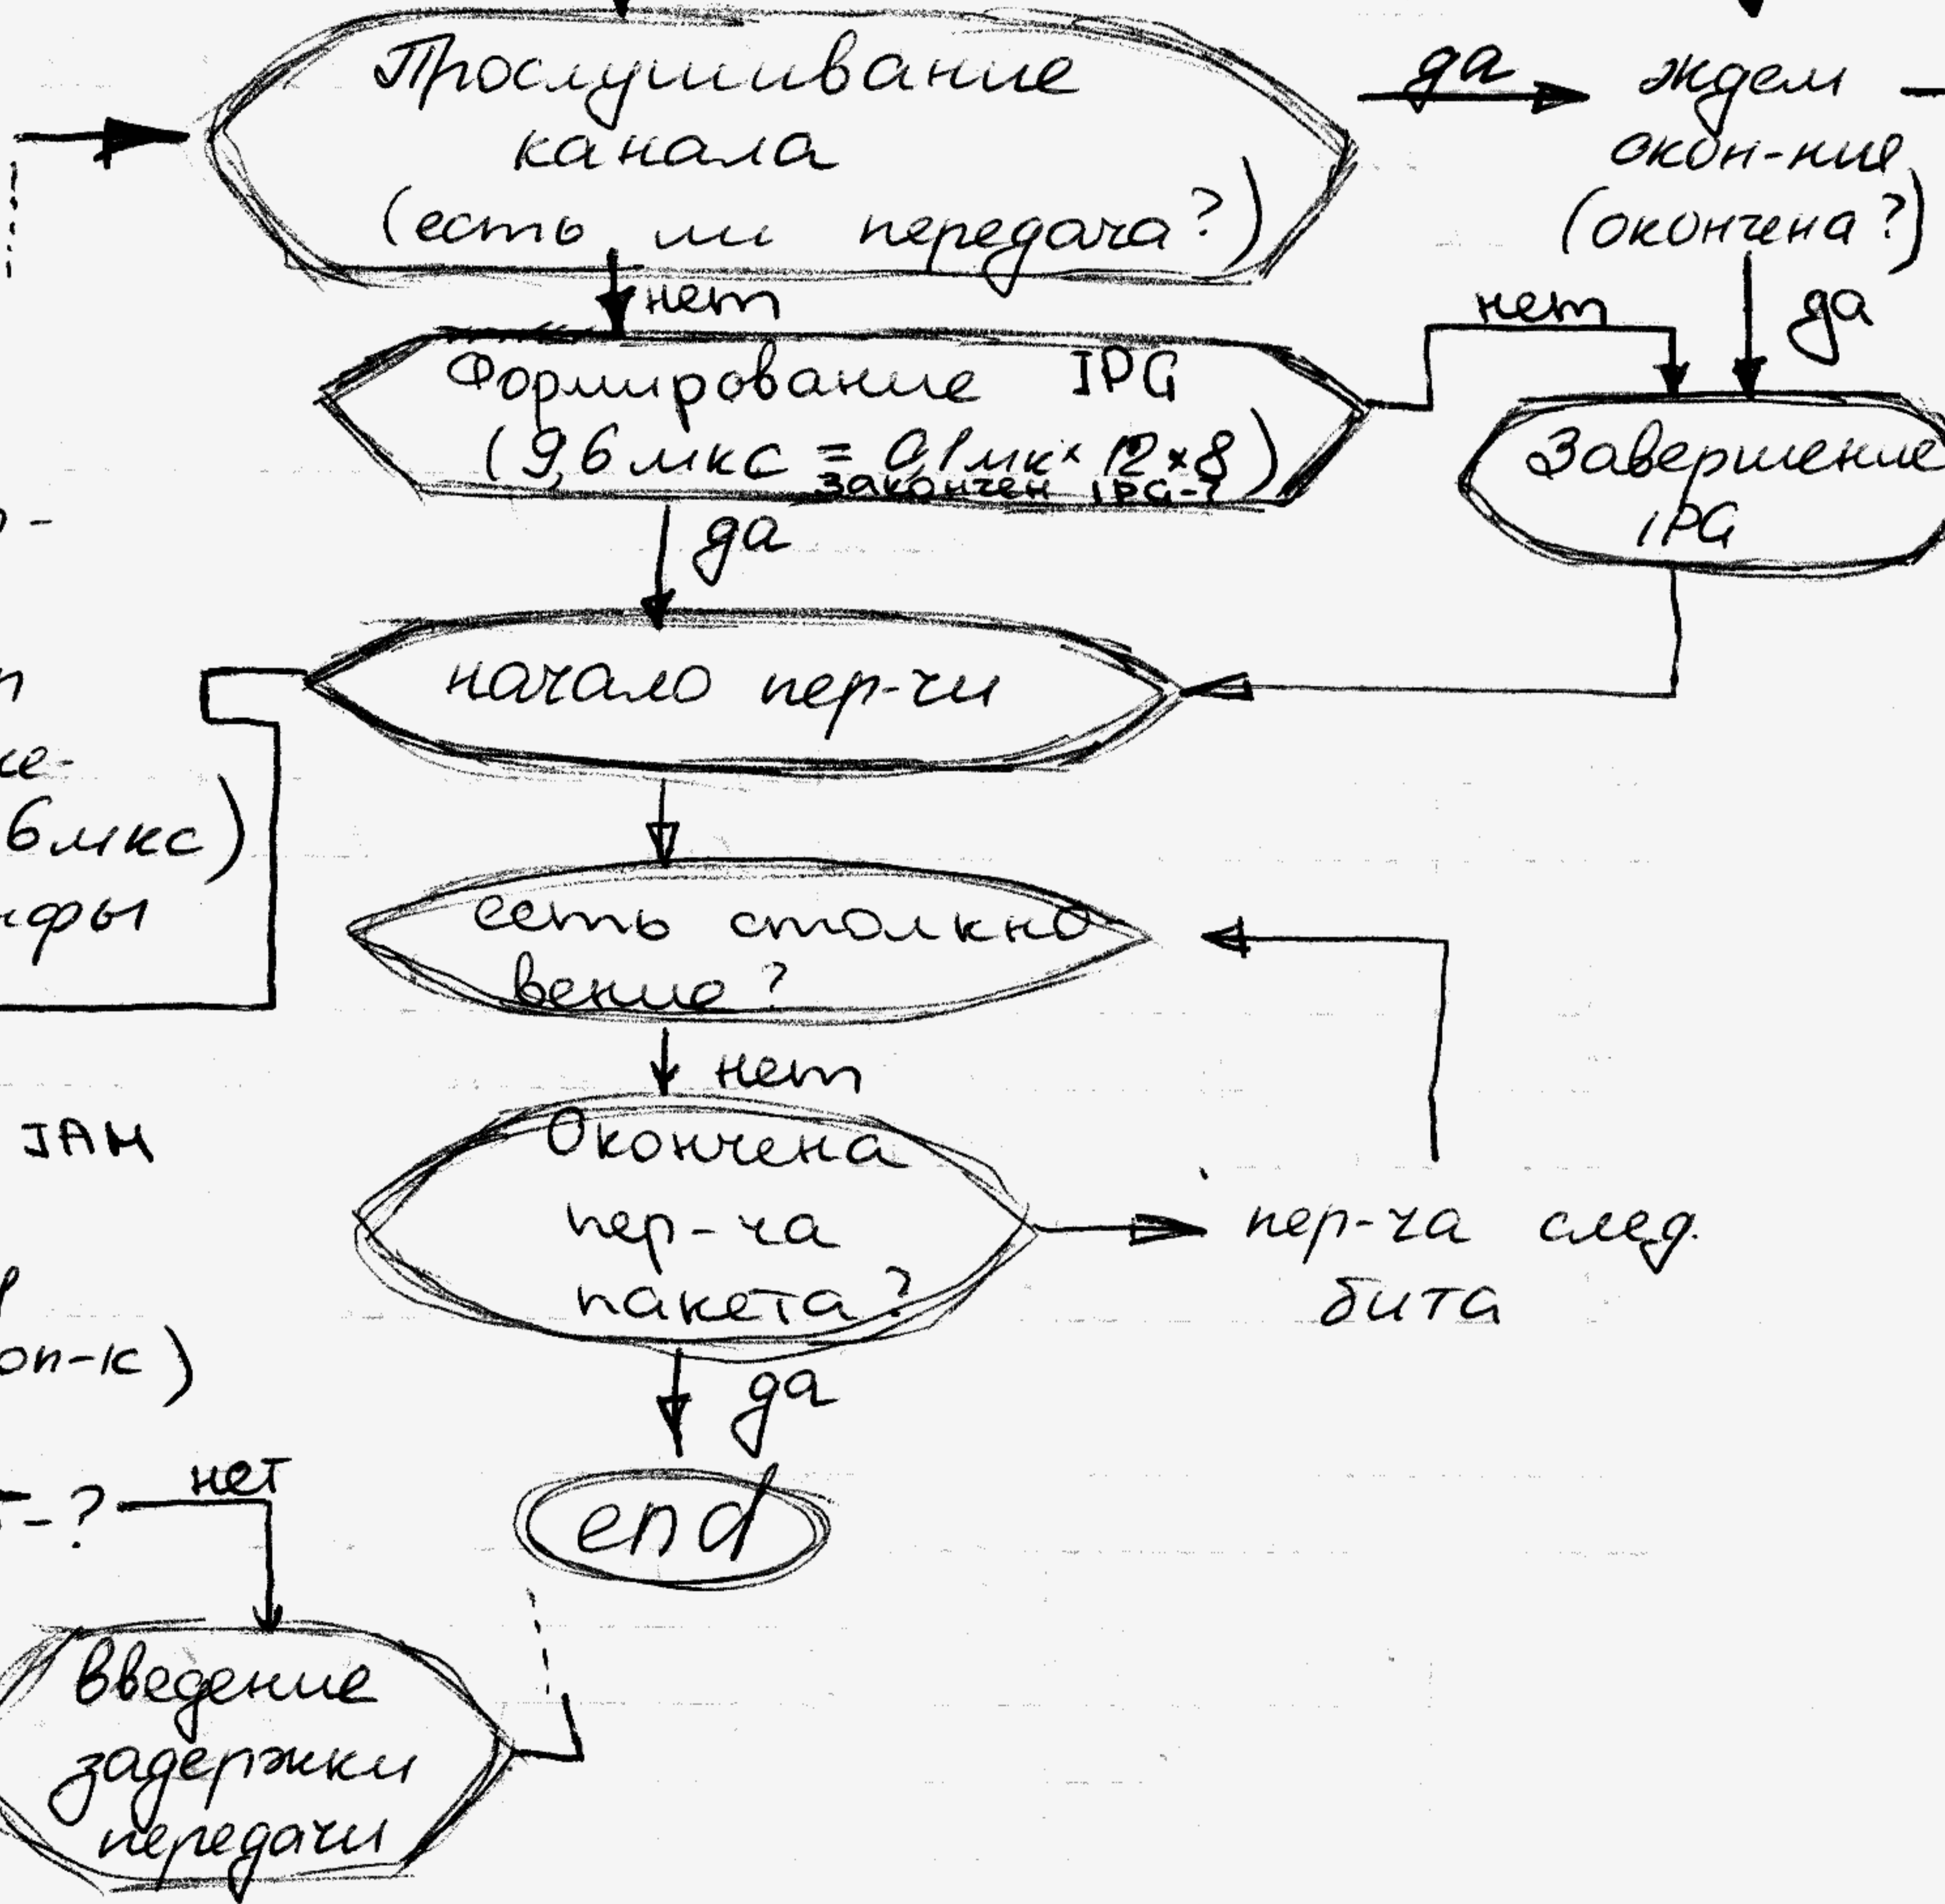 Прослушивание
канала
(есть ли передача?)
да
ждем
окон-ние
(окончена?)
нет
нет
да
Формирование IPG
(9,6 мкс = 0,1 мк × 12 × 8)
закончен IPG-?
Завершение
IPG
да
начало пер-чи
6 мкс)
есть столкно
вение?
нет
JAM
Окончена
пер-ча
пакета?
пер-ча след.
бита
да
нет
-?
end
Введение
задержки
передачи